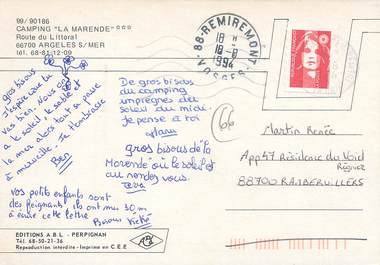 99/90186
CAMPING "LA MARENDE"***
Route du Littoral
66700 ARGELES S/MER
tél. 68-81-12-09
88-REMIREMONT
VOSGES
18 H
18-8
1994
gros bisous
J'espère que tu
vas bien. Nous on
a le soleil le sable et
la mer alors tout se passe
à merveille. Je t'embrasse
Ben
De gros bisous
du camping
imprégnés du
soleil du midi.
Je pense à toi
gros bisous de la
Marende où le soleil est
au rendez vous.
vos petits enfants sont
des feignants ils ont mis 30 m
à écrire cette lettre
Bisous Kéké
66
Martin Renée
App 57 Résidence du Void
Régnier
88700 RAMBERVILLERS
EDITIONS A B L - PERPIGNAN
Tél. 68-50-21-36
Reproduction interdite - Imprimé en C.E.E